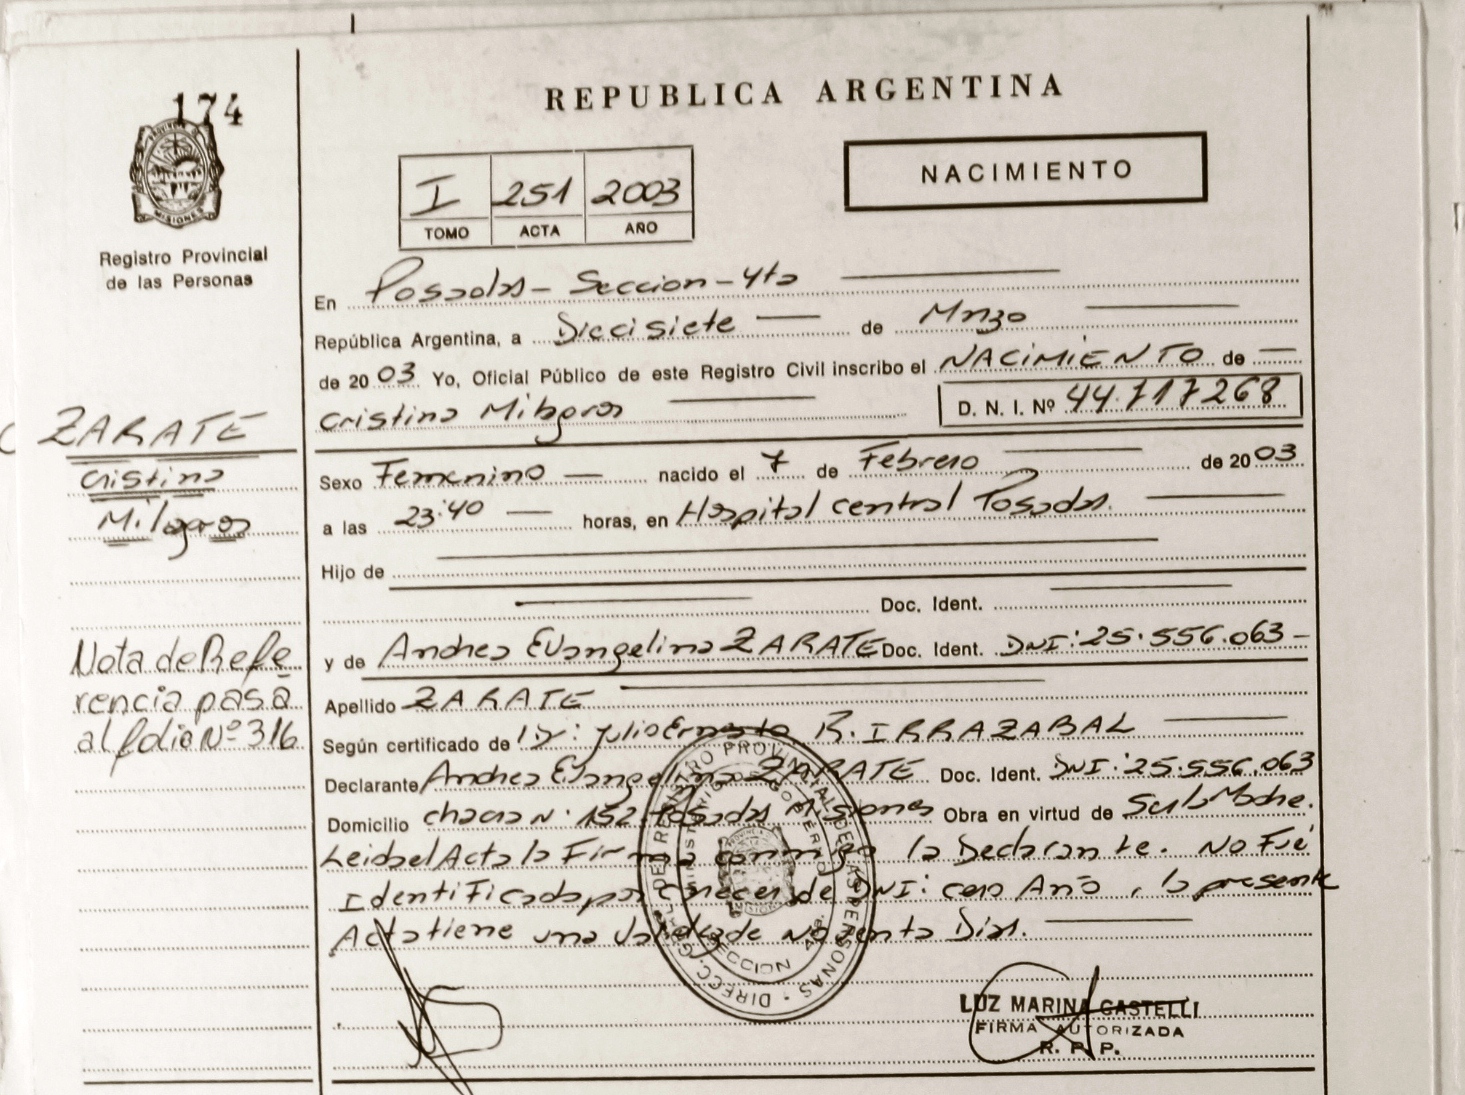 174
PROVINCIA DE
MISIONES
Registro Provincial
de las Personas
REPUBLICA ARGENTINA
I 251 2003
TOMO ACTA AÑO
NACIMIENTO
En Posadas - Seccion - 4ta
República Argentina, a Diecisiete de Marzo
de 2003 Yo, Oficial Público de este Registro Civil inscribo el NACIMIENTO de
Cristina Milagros D. N. I. Nº 44.717268
ZARATE
Cristina
Milagros
Sexo Femenino nacido el 7 de Febrero de 2003
a las 23:40 horas, en Hospital central Posadas.
Hijo de
Doc. Ident.
y de Andrea Evangelina ZARATE Doc. Ident. DNI: 25.556.063
Apellido ZARATE
Nota de Refe
rencia pasa
al folio Nº 316
Según certificado de Dr: Julio Ernesto R. IRRAZABAL
Declarante Andrea Evangelina ZARATE Doc. Ident. DNI: 25.556.063
Domicilio chacra N: 152 Posadas Misiones Obra en virtud de Ser la Madre.
Leida el Acta la Firma conmigo la Declarante. No Fué
Identificada por carecer de DNI: cero Año, la presente
Acta tiene una validez de Noventa Dias.
DIRECC. GRAL. DEL REGISTRO PROVINCIAL DE LAS PERSONAS
MINISTERIO GOBIERNO
SECCION 4ta.
LUZ MARINA CASTELLI
FIRMA AUTORIZADA
R. P. P.